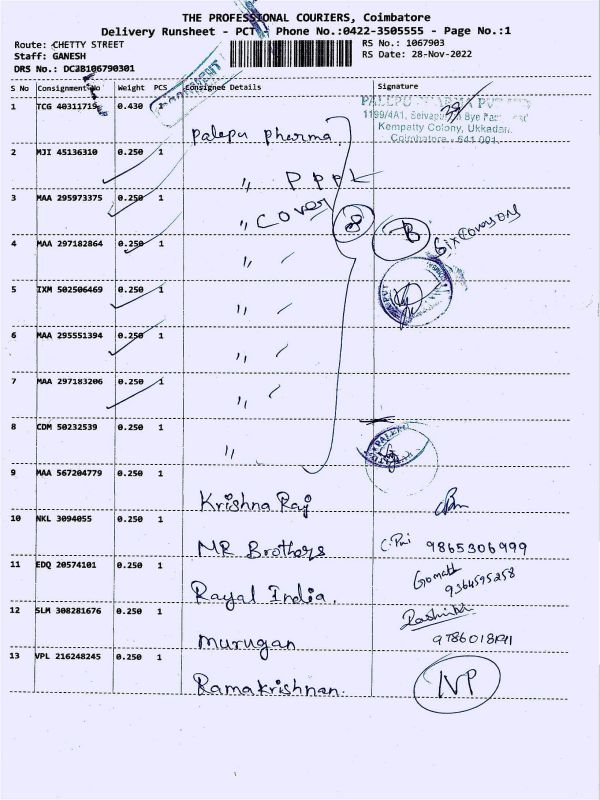 THE PROFESSIONAL COURIERS, Coimbatore
Delivery Runsheet - PCT - Phone No.:0422-3505555 - Page No.:1
Route: CHETTY STREET
Staff: GANESH
DRS No.: DC2B106790301
RS No.: 1067903
RS Date: 28-Nov-2022
S No Consignment No Weight PCS Consignee Details Signature
1 TCG 40311719 0.430 1
PALEPU PHARMA PVT LTD
1199/4A1, Selvapuram Bye Pass Road
Kempatty Colony, Ukkadam
Coimbatore - 641 001
Palepu Pharma
2 MJI 45136310 0.250 1
" PPPL
3 MAA 295973375 0.250 1
" Cover 8
Six Covers only
4 MAA 297182864 0.250 1
"
5 IXM 502506469 0.250 1
"
6 MAA 295551394 0.250 1
"
7 MAA 297183206 0.250 1
"
8 CDM 50232539 0.250 1
"
9 MAA 567204779 0.250 1
Krishna Raj
10 NKL 3094055 0.250 1
MR Brothers 9865306999
11 EDQ 20574101 0.250 1
Rayal India. Gomathi
12 SLM 308281676 0.250 1
Murugan
13 VPL 216248245 0.250 1
Ramakrishnan. IVP